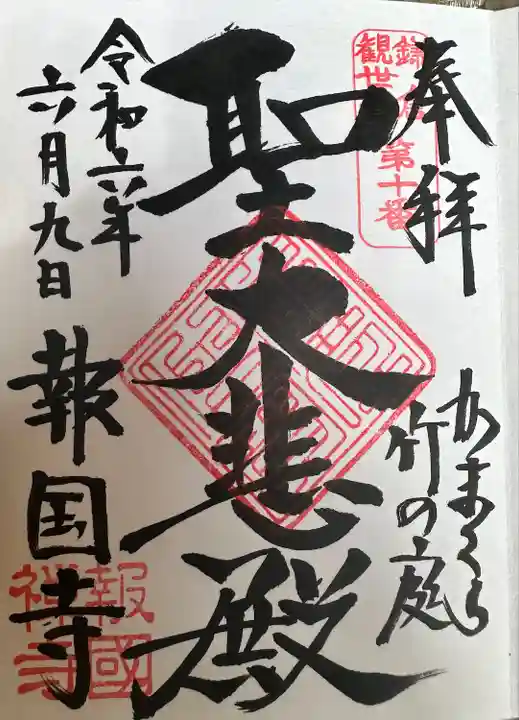 奉拝
かまくら
竹の庭
聖大悲殿
令和六年
六月九日
報国寺
鎌倉
観世音第十番
報國
禅寺